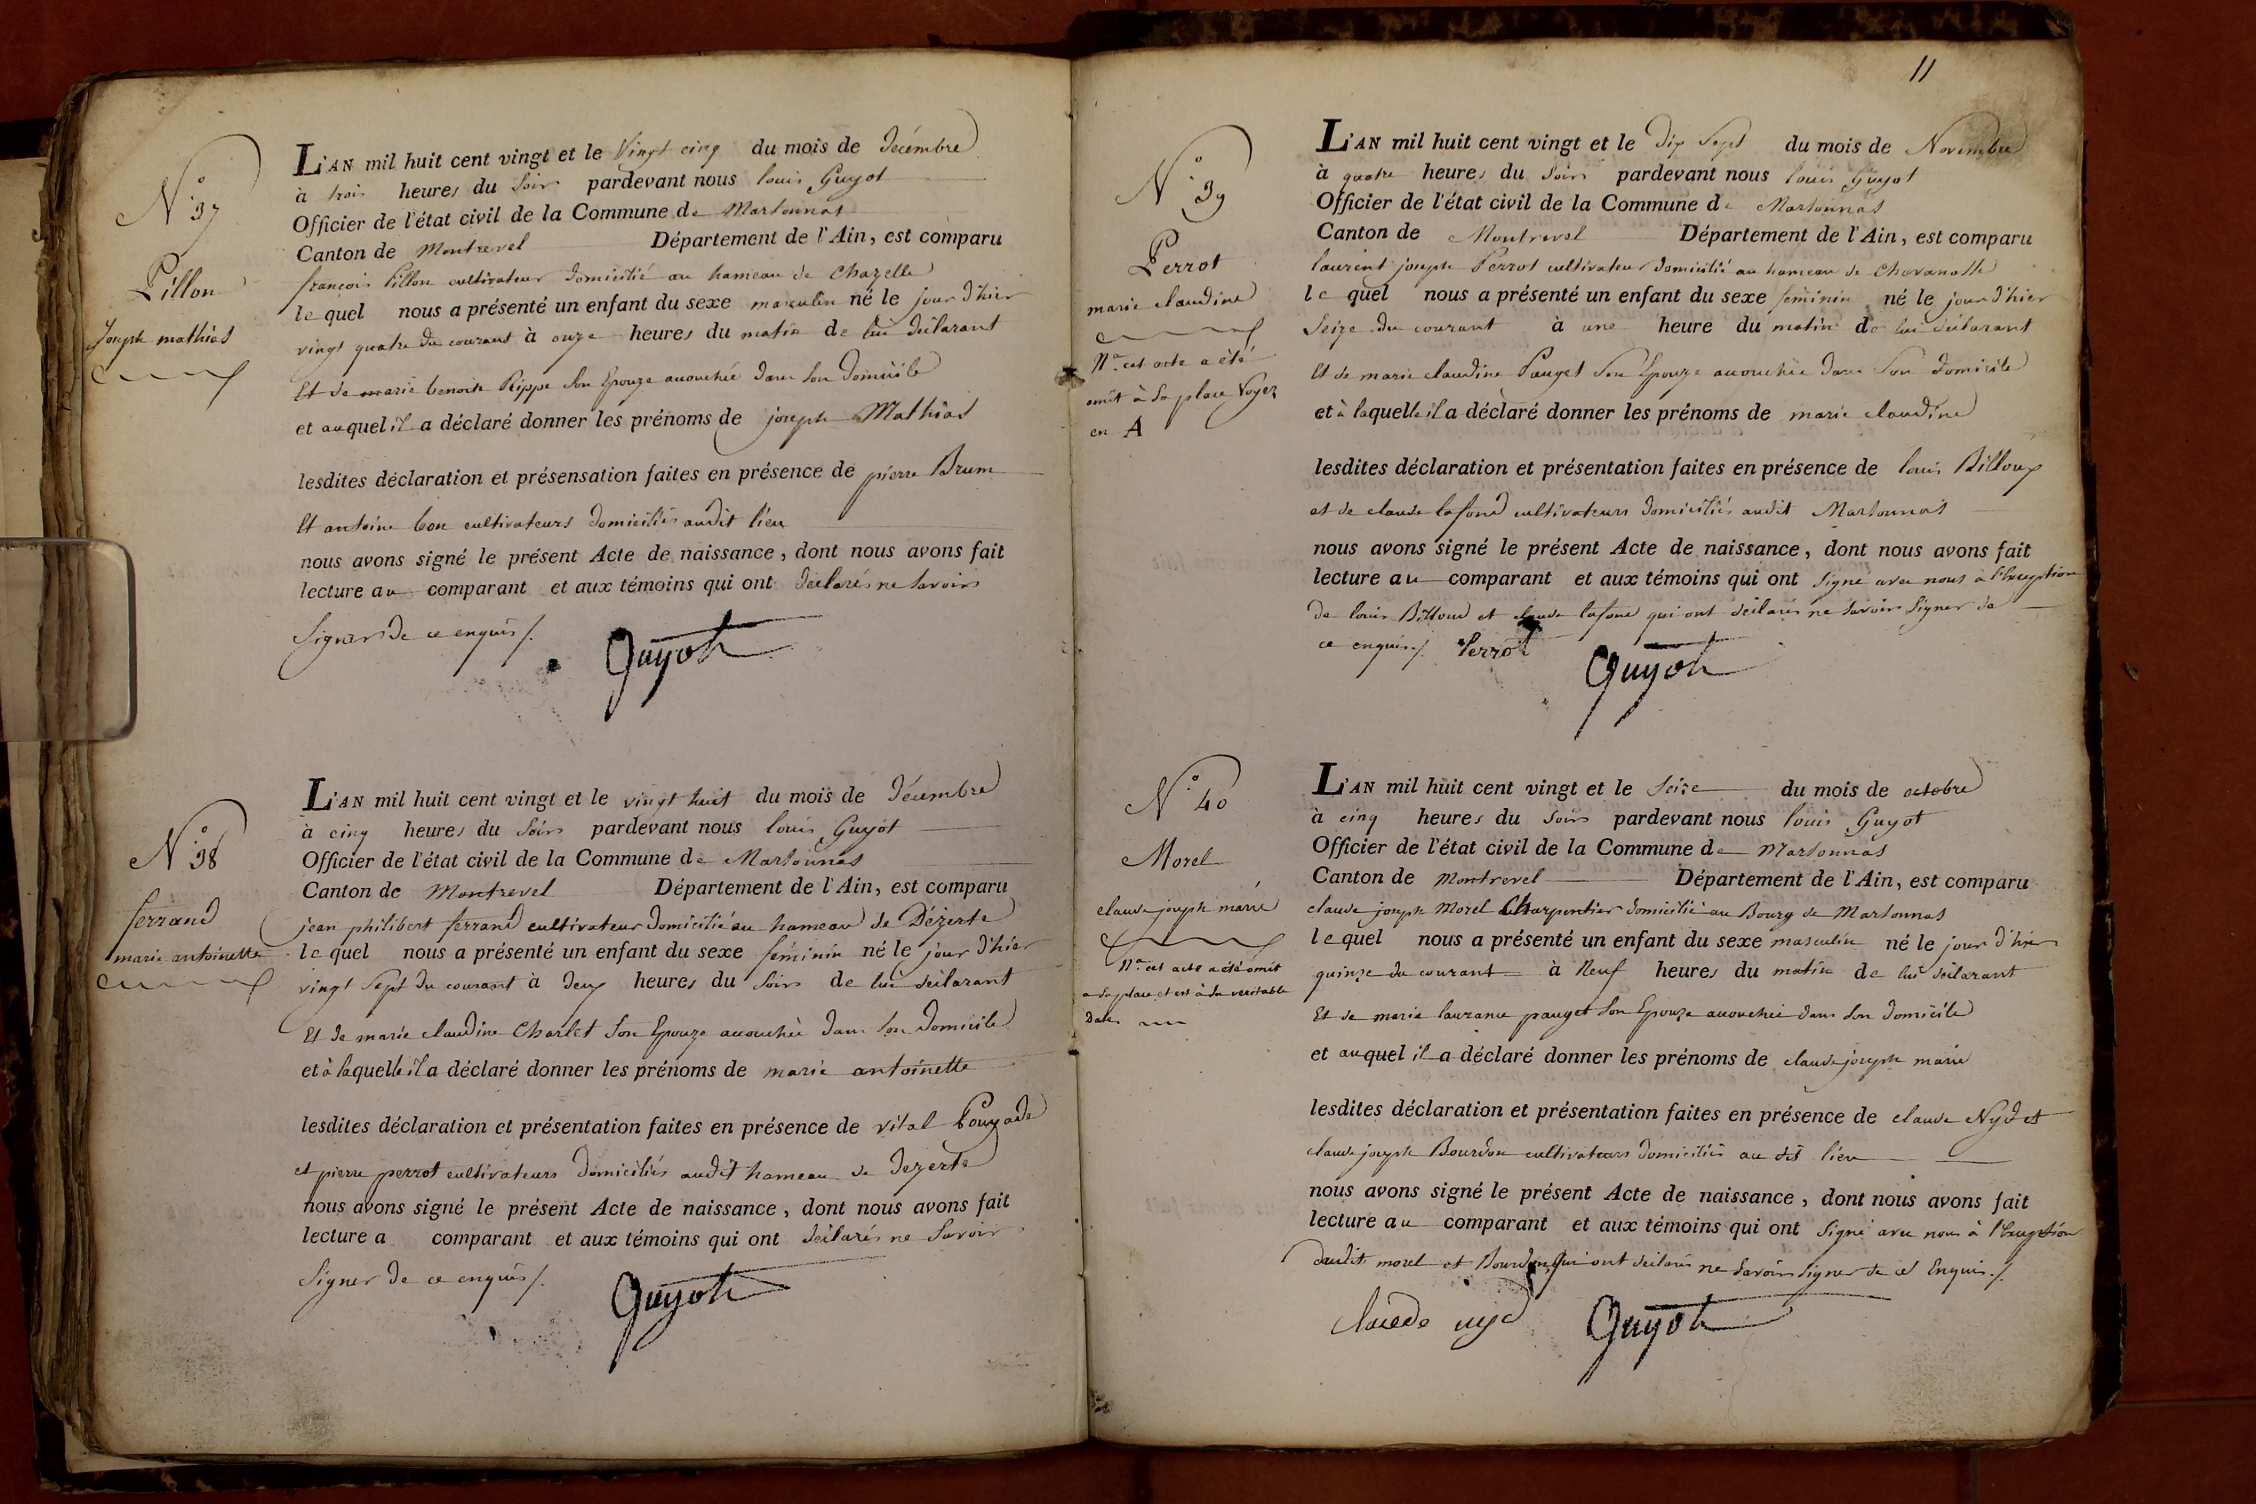 N° 37
Pillon
Joseph mathias
L'AN mil huit cent vingt et le Vingt cinq du mois de décembre
à trois heures du Soir pardevant nous louis Guyot
Officier de l'état civil de la Commune de Marsonnas
Canton de Montrevel Département de l'Ain, est comparu
françois Pillon cultivateur domicilié au hameau de Chazelle
lequel nous a présenté un enfant du sexe masculin né le jour d'hier
vingt quatre du courant à onze heures du matin de lui déclarant
Et de marie benoite Rippe Son Epouze accouchée dans Son domicile
et auquel il a déclaré donner les prénoms de joseph Mathias
lesdites déclaration et présensation faites en présence de pierre Brum
Et antoine bon cultivateurs domiciliés audit lieu
nous avons signé le présent Acte de naissance, dont nous avons fait
lecture au comparant et aux témoins qui ont déclarés ne Savoir
Signer de ce enquis /.
Guyot
N° 38
ferrand
marie antoinette
L'AN mil huit cent vingt et le vingt huit du mois de décembre
à cinq heures du Soir pardevant nous louis Guyot
Officier de l'état civil de la Commune de Marsonnas
Canton de Montrevel Département de l'Ain, est comparu
jean philibert ferrand cultivateur domicilié au hameau de Dézerte
lequel nous a présenté un enfant du sexe féminin né le jour d'hier
vingt Sept du courant à deux heures du Soir de lui déclarant
Et de marie claudine Charlet Son Epouze accouchée dans Son domicile
et à laquelle il a déclaré donner les prénoms de marie antoinette
lesdites déclaration et présentation faites en présence de vital Pougade
et pierre perrot cultivateurs domiciliés audit hameau de dezerte
nous avons signé le présent Acte de naissance, dont nous avons fait
lecture a comparant et aux témoins qui ont déclarés ne Savoir
Signer de ce enquis /.
Guyot
11
N° 39
Perrot
marie claudine
Na cet acte a été
omit à Sa place Voyez
en A
L'AN mil huit cent vingt et le dix Sept du mois de Novembre
à quatre heures du Soir pardevant nous louis Guyot
Officier de l'état civil de la Commune de Marsonnas
Canton de Montrevel Département de l'Ain, est comparu
laurent joseph Perrot cultivateur domicilié au hameau de Chavanotte
lequel nous a présenté un enfant du sexe féminin né le jour d'hier
Seize du courant à une heure du matin de lui déclarant
Et de marie claudine Pauget Son Epouze accouchée dans Son domicile
et à laquelle il a déclaré donner les prénoms de marie claudine
lesdites déclaration et présentation faites en présence de louis Billoux
et de claude lafond cultivateurs domiciliés audit Marsonnas
nous avons signé le présent Acte de naissance, dont nous avons fait
lecture au comparant et aux témoins qui ont Signé avec nous à l'Exception
de louis Billoud et claude lafond qui ont déclarés ne Savoir Signer de
ce enquis /. Perrot
Guyot
N° 40
Morel
claude joseph marie
Na cet acte a été omit
a Sa place et est à Sa veritable
Date
L'AN mil huit cent vingt et le Seize du mois de octobre
à cinq heures du Soir pardevant nous louis Guyot
Officier de l'état civil de la Commune de Marsonnas
Canton de Montrevel Département de l'Ain, est comparu
claude joseph Morel Charpentier domicilié au Bourg de Marsonnas
lequel nous a présenté un enfant du sexe masculin né le jour d'hier
quinze du courant à Neuf heures du matin de lui déclarant
Et de marie laurance pauget Son Epouze accouchée dans Son domicile
et auquel il a déclaré donner les prénoms de claude joseph marie
lesdites déclaration et présentation faites en présence de claude Nyd et
claude joseph Bourdon cultivateurs domiciliés au dit lieu
nous avons signé le présent Acte de naissance, dont nous avons fait
lecture au comparant et aux témoins qui ont Signé avec nous à l'Exception
dudit morel et Bourdon Qui ont déclarés ne Savoir Signer de ce Enquis /.
Claude nyd
Guyot